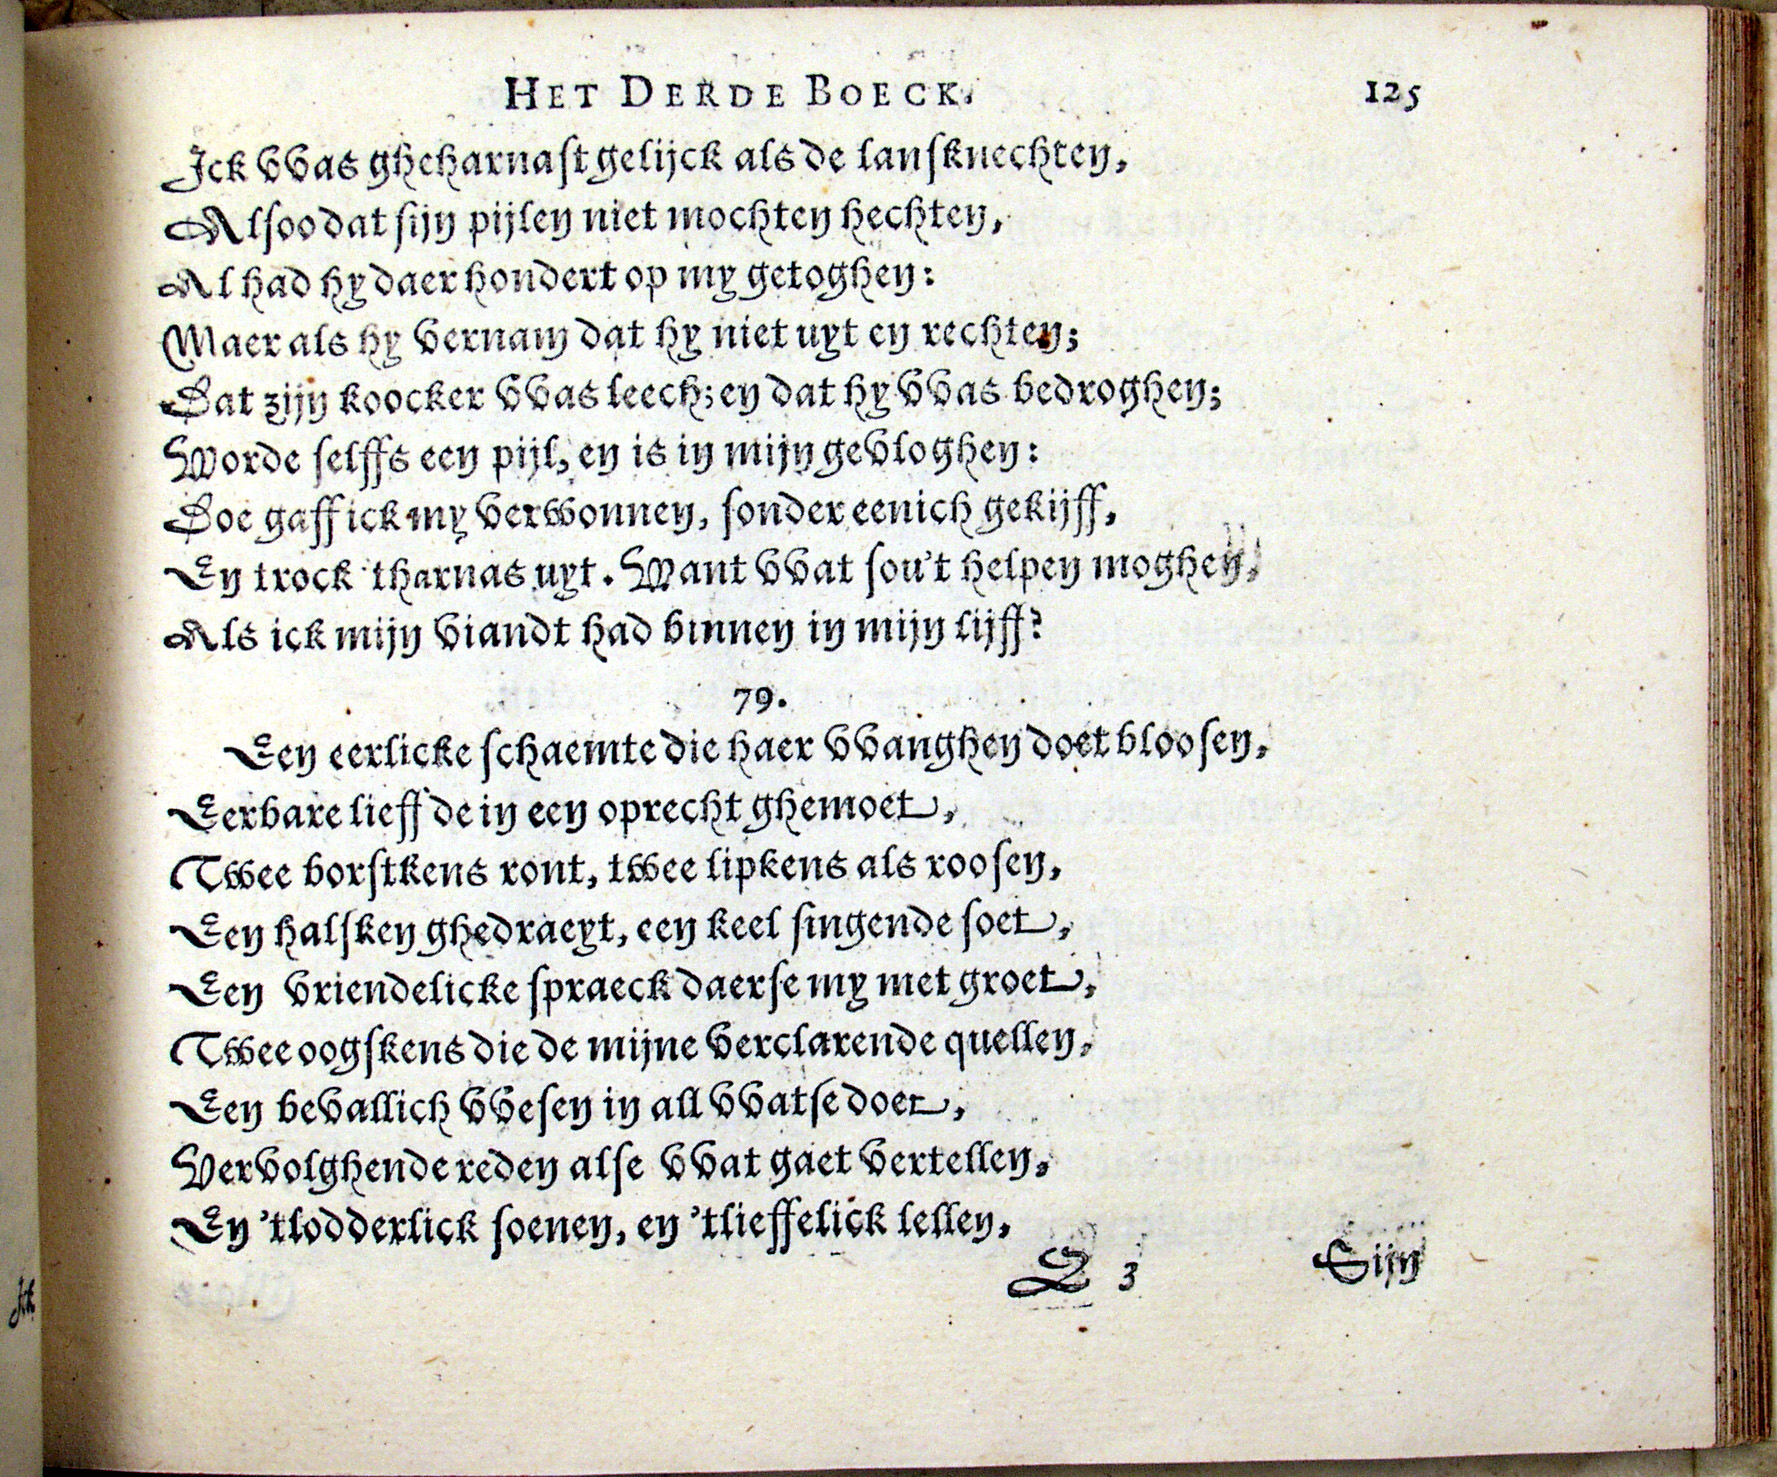 HET DERDE BOECK. 125
Ick vvas gheharnast gelijck als de lansknechten,
Alsoo dat sijn pijlen niet mochten hechten,
Al had hy daer hondert op my getoghen:
Maer als hy vernam dat hy niet uyt en rechten;
Dat zijn koocker vvas leech; en dat hy vvas bedroghen;
Worde selffs een pijl, en is in mijn gevloghen:
Doe gaff ick my verwonnen, sonder eenich gekijff,
En trock 'tharnas uyt. Want vvat sou't helpen moghen,
Als ick mijn viandt had binnen in mijn lijff?
79.
Een eerlicke schaemte die haer vvanghen doet bloosen,
Eerbare lieffde in een oprecht ghemoet,
Twee borstkens ront, twee lipkens als roosen,
Een halsken ghedraeyt, een keel singende soet,
Een vriendelicke spraeck daerse my met groet,
Twee oogskens die de mijne verclarende quellen,
Een bevallich vvesen in all vvatse doet,
Vervolghende reden alse vvat gaet vertellen,
En 'tlodderlick soenen, en 'tlieffelick lellen,
Q 3 Sijn